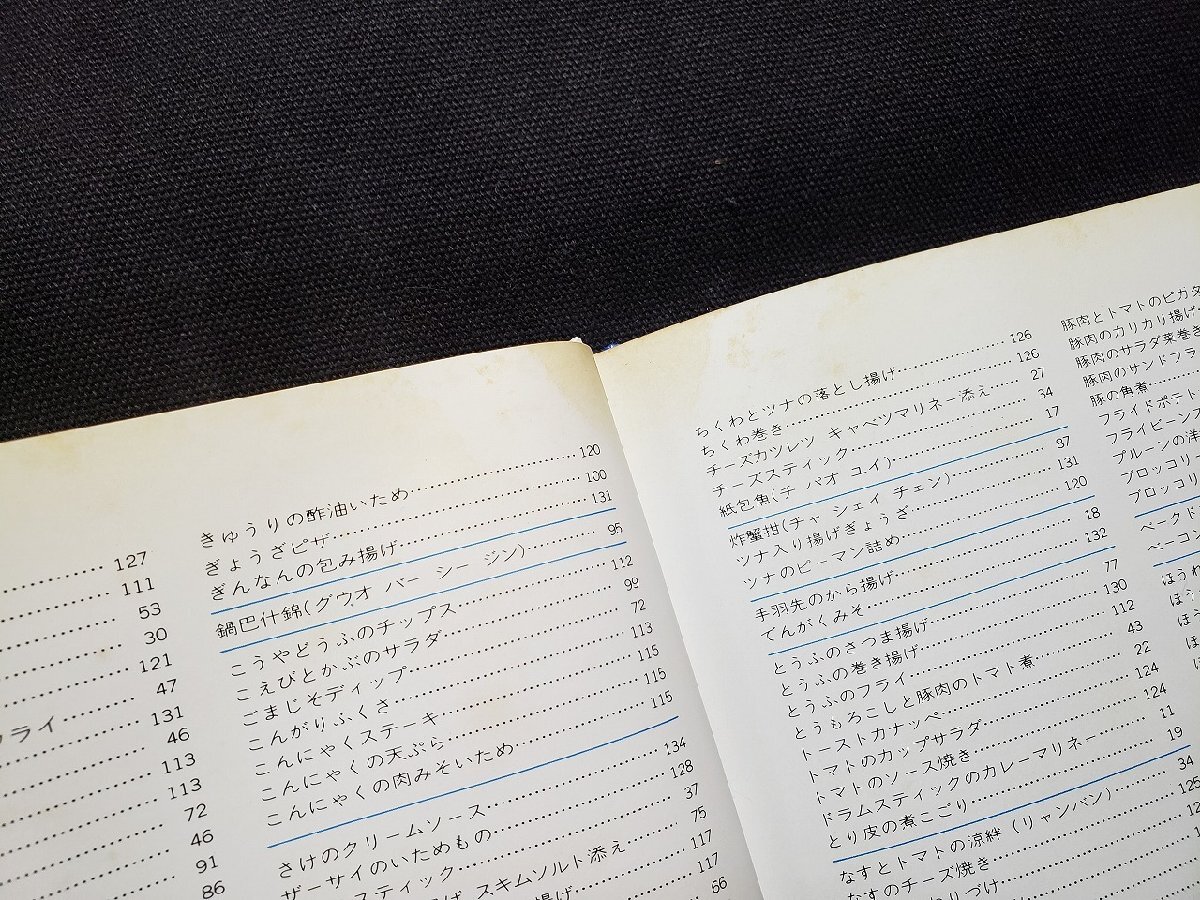 127
111
53
30
121
ライ……47
131
46
113
113
72
46
91
86
きゅうりの酢油いため……120
ぎょうざピザ……100
ぎんなんの包み揚げ……131
鍋巴什錦(グウオ バー シー ジン)……95
こうやどうふのチップス……112
こえびとかぶのサラダ……99
ごまじそディップ……72
こんがりふくさ……113
こんにゃくステーキ……115
こんにゃくの天ぷら……115
こんにゃくの肉みそいため……115
さけのクリームソース……134
ザーサイのいためもの……128
スティック……37
げ スキムソルト添え……75
揚げ……117
117
56
ちくわとツナの落とし揚げ……126
ちくわ巻き……126
チーズカツレツ キャベツマリネー添え……27
チーズスティック……34
紙包魚(チ バオ コイ)……17
炸蟹拑(チャ シェイ チェン)……97
ツナ入り揚げぎょうざ……131
ツナのピーマン詰め……120
手羽先のから揚げ……18
てんがくみそ……132
とうふのさつま揚げ……77
とうふの巻き揚げ……130
とうふのフライ……112
とうもろこしと豚肉のトマト煮……43
トーストカナッペ……22
トマトのカップサラダ……124
トマトのソース焼き……124
ドラムスティックのカレーマリネー……11
とり皮の煮こごり……19
なすとトマトの涼絆(リャンバン)……34
なすのチーズ焼き……125
りづけ
豚肉とトマトのピカタ
豚肉のカリカリ揚げ
豚肉のサラダ菜巻き
豚肉のサンドフラ
豚の角煮
フライドポテト
フライビーンズ
プルーンの洋
ブロッコリー
ブロッコリ
ベークド
ベーコン
ほうれ
ほう
ほう